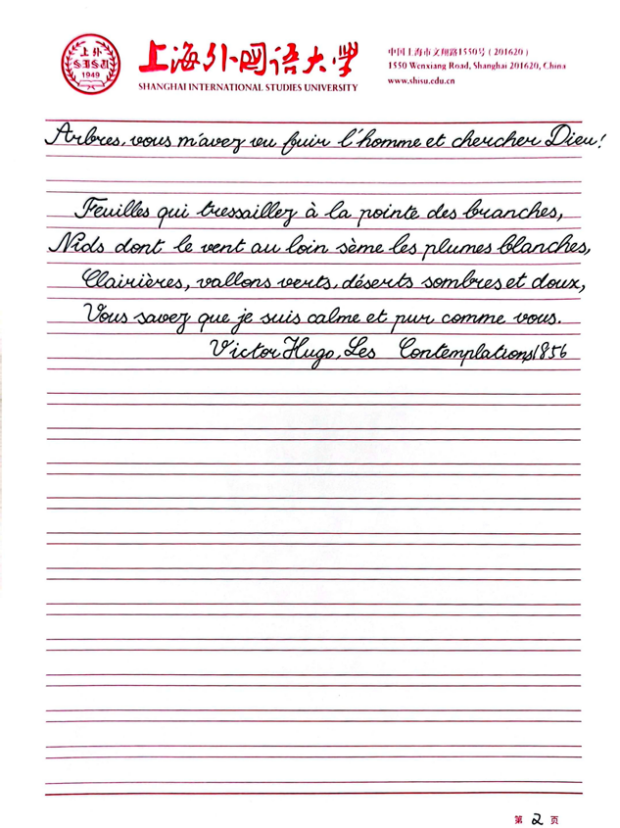 上外
SISU
1949
上海外国语大学
SHANGHAI INTERNATIONAL STUDIES UNIVERSITY
中国上海市文翔路1550号(201620)
1550 Wenxiang Road, Shanghai 201620, China
www.shisu.edu.cn
Arbres, vous m'avez vu fuir l'homme et chercher Dieu!
Feuilles qui tressaillez à la pointe des branches,
Nids dont le vent au loin sème les plumes blanches,
Clairières, vallons verts, déserts sombres et doux,
Vous savez que je suis calme et pur comme vous.
Victor Hugo, Les Contemplations,1856
第 2 页